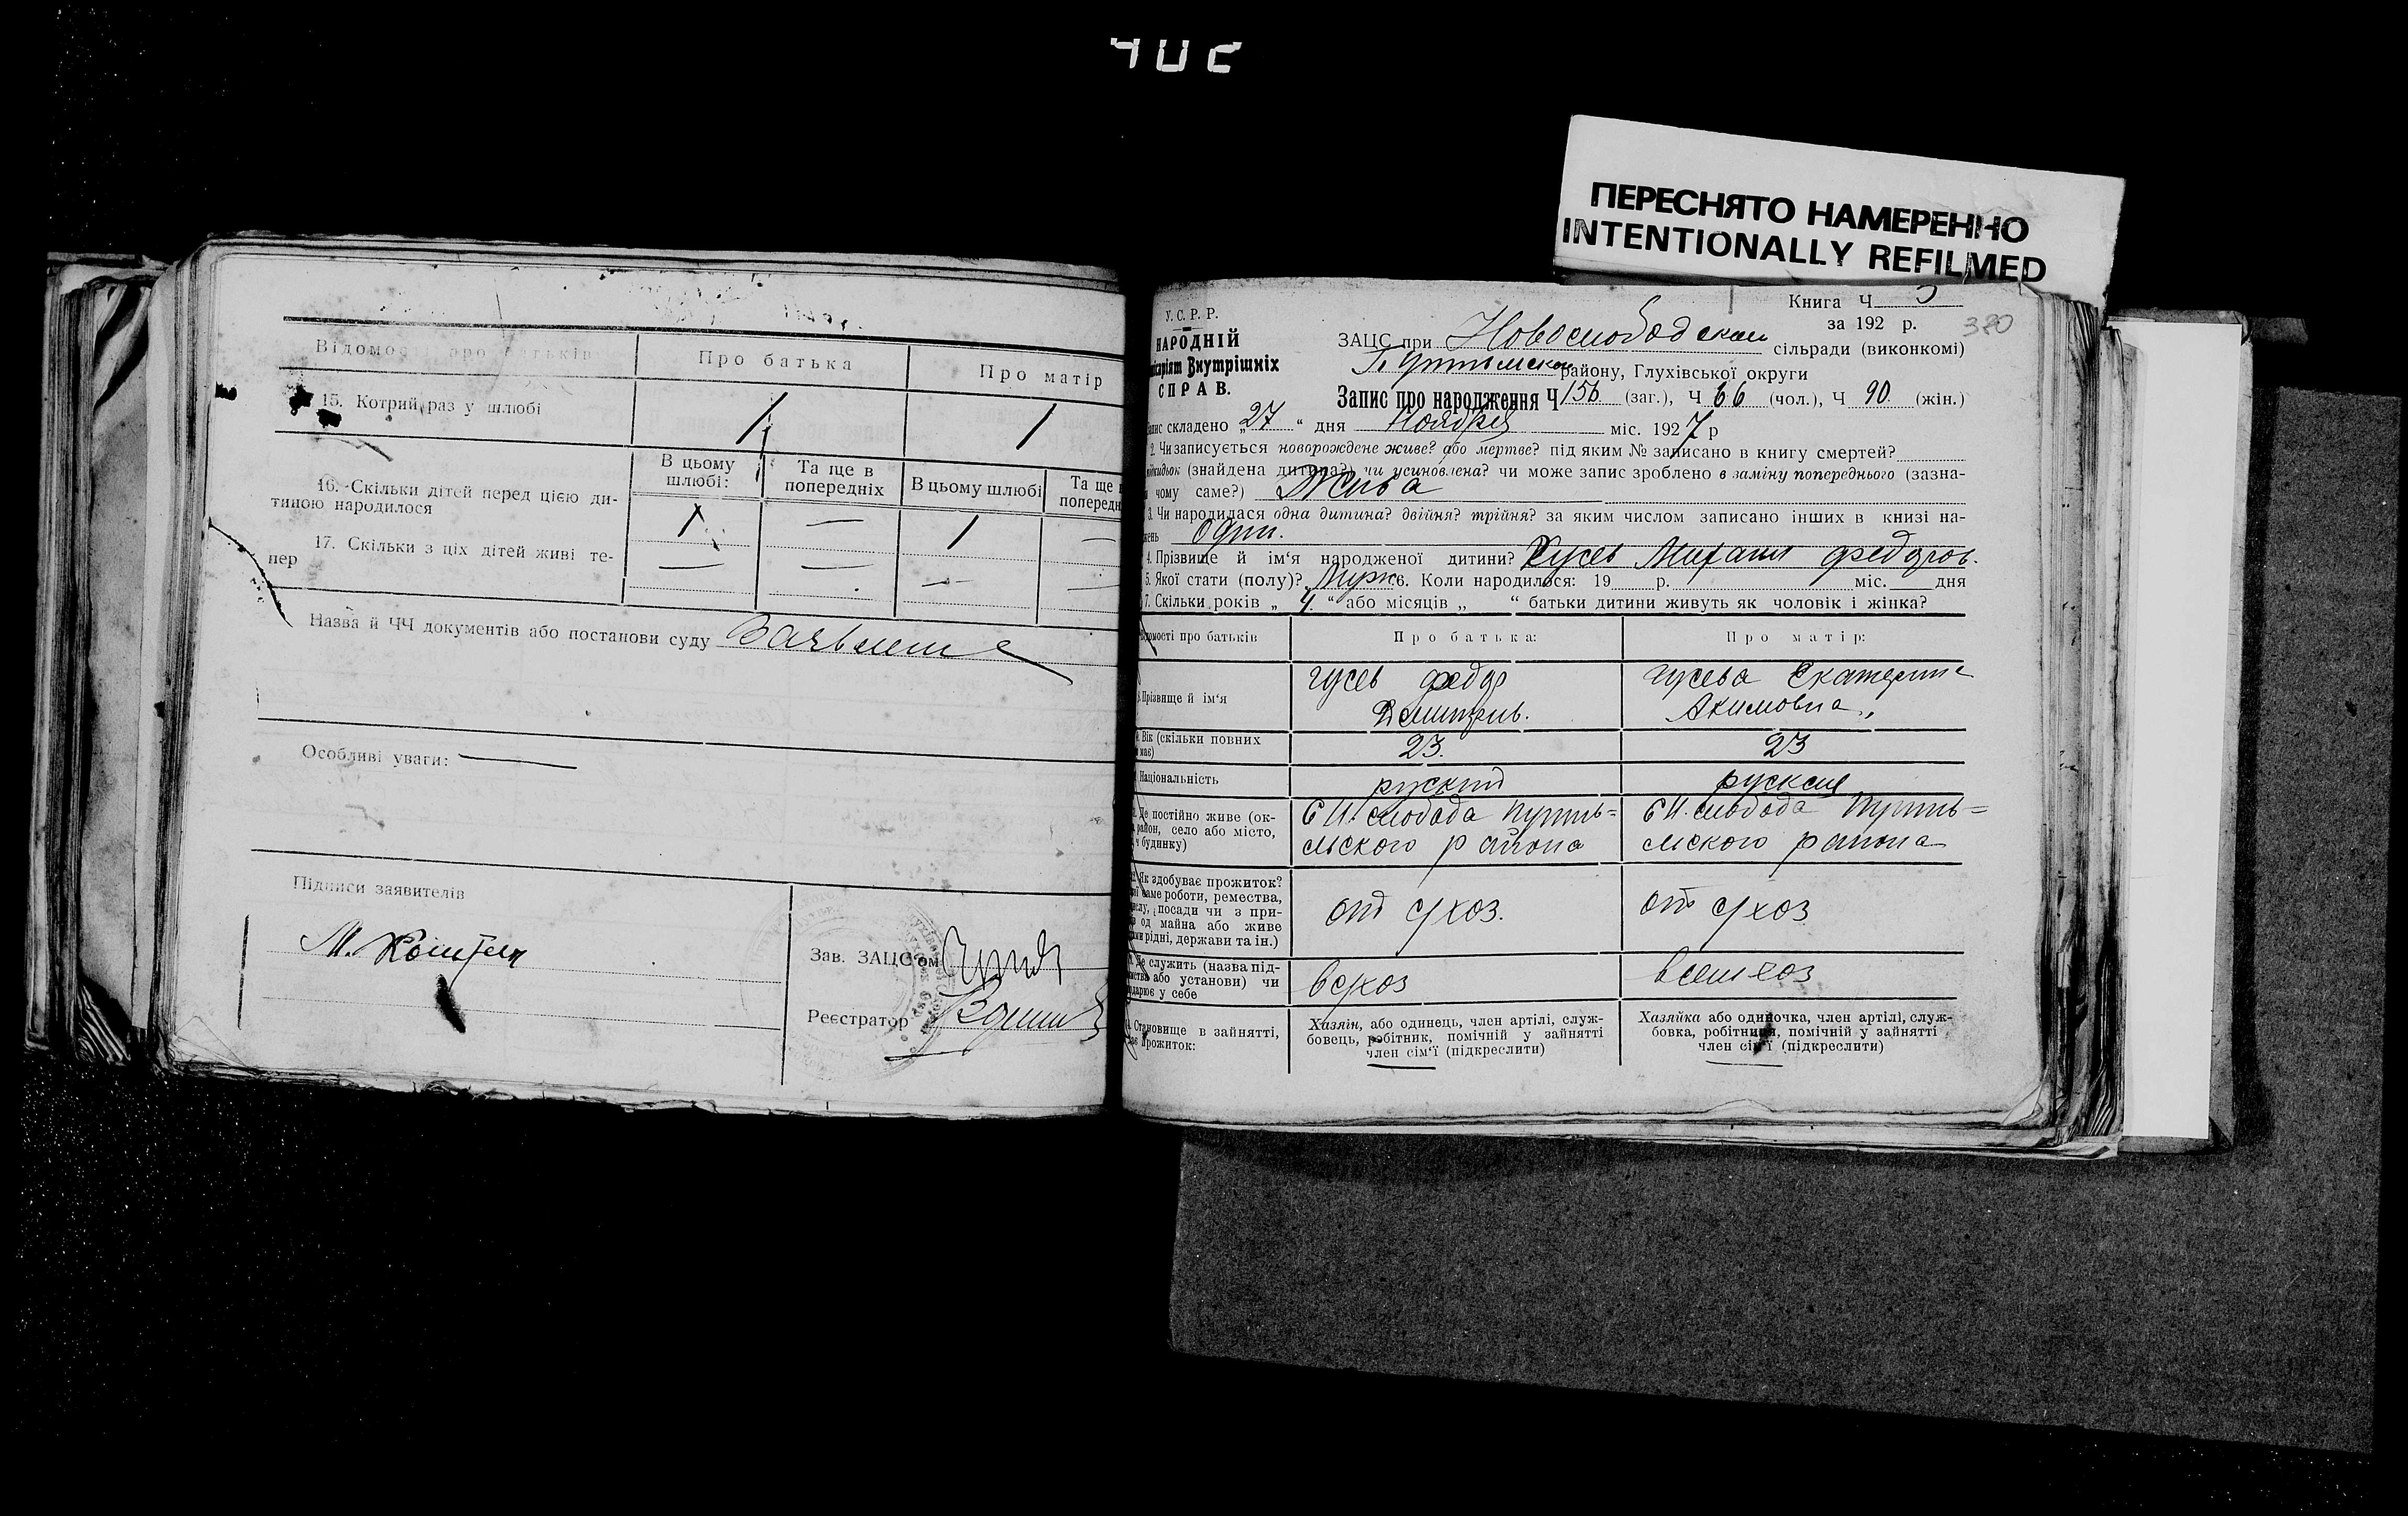 402
ПЕРЕСНЯТО НАМЕРЕННО
INTENTIONALLY REFILMED
Відомості про батьків
Про батька
Про матір
15. Котрий раз у шлюбі
1
1
16. Скільки дітей перед цією ди-
тиною народилося
В цьому
шлюбі:
Та ще в
попередніх
В цьому шлюбі
Та ще
поперед
1 — 1 —
17. Скільки з ціх дітей живі те-
пер
— — — —
Назва й ЧЧ документів або постанови суду Заявление
Особливі уваги: —
Підписи заявителів
Зав. ЗАЦС'ом
Реєстратор
Книга Ч. 3
за 192 р.
380
У. С. Р. Р.
НАРОДНІЙ
Внутрішніх
СПРАВ.
ЗАЦС при Новослободском сільради (виконкомі)
району, Глухівської округи
Запис про народження Ч 156 (заг.), Ч 66 (чол.), Ч 90 (жін.)
складено „27“ дня Ноября міс. 1927 р
2. Чи записується новорождене живе? або мертве? під яким № записано в книгу смертей?
(знайдена дитина?) чи усиновлена? чи може запис зроблено в заміну попереднього (зазна-
чому саме?) Жива
3. Чи народилася одна дитина? двійня? трійня? за яким числом записано інших в книзі на-
один.
4. Прізвище й ім'я народженої дитини? Гусев Михаил Федоров.
5. Якої стати (полу)? Муж 6. Коли народилося: 19 р. міс. дня
7. Скільки років „4“ або місяців „ “ батьки дитини живуть як чоловік і жінка?
про батьків
Про батька:
Про матір:
Прізвище й ім'я
Гусев Федор
Дмитрив.
Гусева Екатерина
Акимовна,
Вік (скільки повних
має)
23.
23
Національність
руский
руская
Де постійно живе (ок-
район, село або місто,
будинку)
С Н. слобода Путив-
льского района
С Н. слобода Путив-
льского района
Як здобуває прожиток?
саме роботи, ремества,
посади чи з при-
од майна або живе
рідні, держави та ін.)
от с/хоз.
от с/хоз
Де служить (назва під-
або установи) чи
у себе
в с/хоз
в сельхоз
Становище в зайнятті,
прожиток:
Хазяїн, або одинець, член артілі, служ-
бовець, робітник, помічній у зайнятті
член сім'ї (підкреслити)
Хазяйка або одиночка, член артілі, служ-
бовка, робітниця, помічній у зайнятті
член сім'ї (підкреслити)